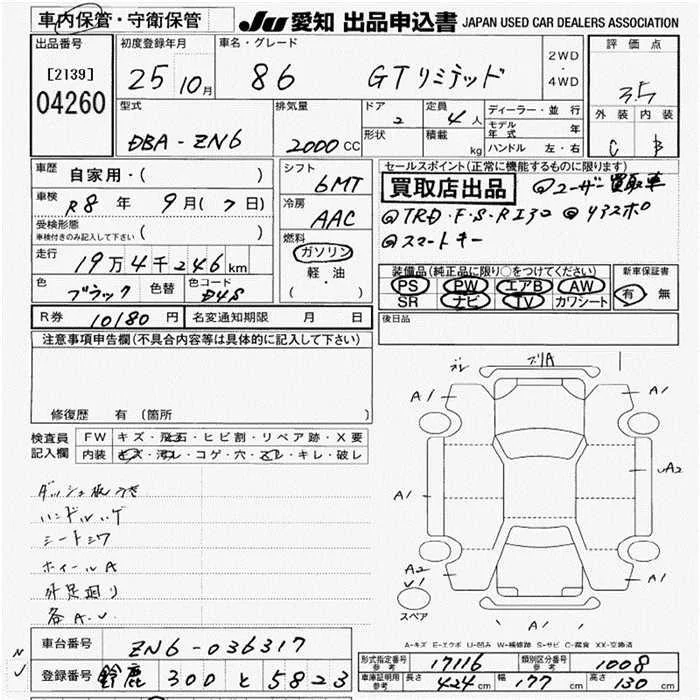 車内保管・守衛保管 JU 愛知 出品申込書 JAPAN USED CAR DEALERS ASSOCIATION
出品番号 初度登録年月 車名・グレード 評価点
[2139] 25 10月 86 GTリミテッド 2WD・4WD 3.5
04260 外装 内装
型式 排気量 ドア 2 定員 4人 ディーラー・並行 C B
DBA-ZN6 2000CC 形状 積載 kg モデル年式 年
ハンドル 左・右
車歴 自家用・( ) シフト 6MT セールスポイント(正常に機能するものに限ります)
車検 R8年 9月(7日) 冷房 AAC 買取店出品 @ユーザー買取車
受検形態 ( ) @TRD・F・S・R1 @
車検付きのみ記入して下さい 燃料 @スマートキー
走行 19万4千246km ガソリン 装備品(純正品に限り○をつけてください) 新車保証書
色 ブラック 色替 色コード D4S 軽・油 PS PW エアB AW 有 無
( ) SR ナビ TV カワシート
R券 10180円 名変通知期限 月 日 後日品
注意事項申告欄(不具合内容等は具体的に記入して下さい)
修復歴 有 (箇所 )
検査員 FW キズ・飛石・ヒビ割・リペア跡・X要
記入欄 内装 キズ・汚レ・コゲ・穴・スレ・キレ・破レ
ダッシュ板
ハンドルハゲ
シートシワ
ホイールA
外足廻り
各A.U
A1 A1
A1 A2
A2 A1
A1
スペア
A-キズ E-エクボ U-凹み W-補修跡 S-サビ C-腐食 XX-交換済
車台番号 ZN6-036317 形式指定番号 参考 17116 類別区分番号 参考 1008
登録番号 鈴鹿 300 と 5823 車庫証明用 参考 長さ 424cm 幅 177cm 高さ 130cm